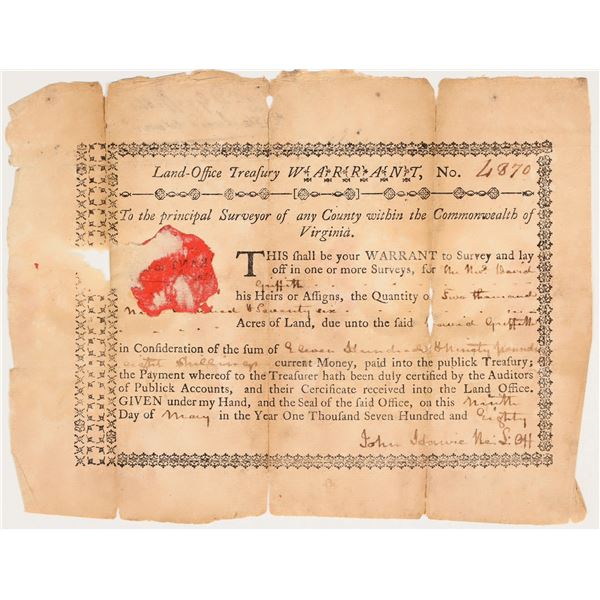 Land-Office Treasury WARRANT, No. 4870
To the principal Surveyor of any County within the Commonwealth of
Virginia.
THIS shall be your WARRANT to Survey and lay
off in one or more Surveys, for David
Griffith
his Heirs or Assigns, the Quantity of Two thousand
& Seventy six
Acres of Land, due unto the said David Griffith
in Consideration of the sum of Eleven Hundred & Ninety pounds
Shillings current Money, paid into the publick Treasury;
the Payment whereof to the Treasurer hath been duly certified by the Auditors
of Publick Accounts, and their Certificate received into the Land Office.
GIVEN under my Hand, and the Seal of the said Office, on this Ninth
Day of May in the Year One Thousand Seven Hundred and Eighty
John